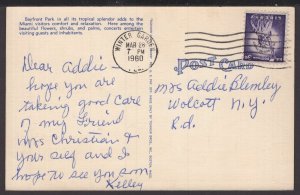 Bayfront Park in all its tropical splendor adds to the
Miami visitors comfort and relaxation. Here among the
beautiful flowers, shrubs, and palms, concerts entertain
visiting guests and inhabitants.
WINTER GARDEN
MAR 26
7 PM
1960
FLA.
Post Card
Dear Addie
hope you are
taking good care
of my Friend
Mrs Christian &
your self and I
hope to see you son
Kelley
Mrs Addie Blemley
Wolcott N.Y.
R.d.